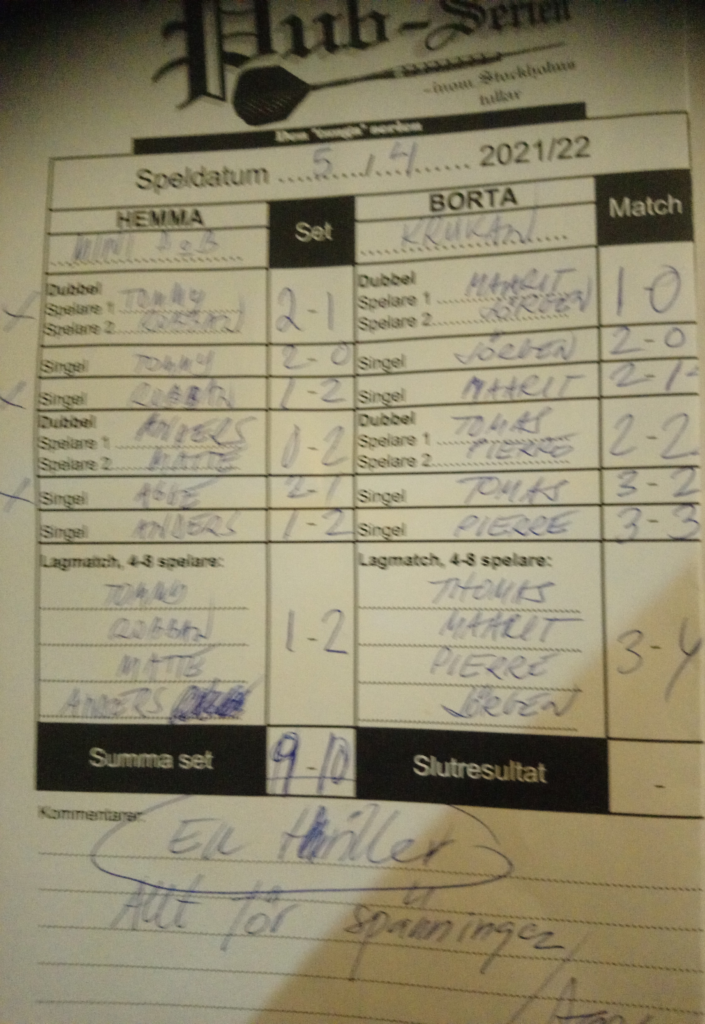 Pub-Serien
~inom Stockholms
tullar
Den "tunga" serien
Speldatum ....5..../.4....... 2021/22
HEMMA Set BORTA Match
MINI KRUKAN
Dubbel Dubbel
Spelare 1 TOMMY Spelare 1 MAARIT
Spelare 2 ROBBAN 2-1 Spelare 2 JÖRGEN 1-0
Singel TOMMY 2-0 Singel JÖRGEN 2-0
Singel ROBBAN 1-2 Singel MAARIT 2-1
Dubbel Dubbel
Spelare 1 ANDERS Spelare 1 TOMAS
Spelare 2 MATTE 0-2 Spelare 2 PIERRE 2-2
Singel 2-1 Singel TOMAS 3-2
Singel ANDERS 1-2 Singel PIERRE 3-3
Lagmatch, 4-8 spelare: Lagmatch, 4-8 spelare:
TOMMY THOMAS
ROBBAN 1-2 MAARIT 3-4
MATTE PIERRE
ANDERS JÖRGEN
Summa set 9-10 Slutresultat -
Kommentarer:
En thriller
Allt för spänningen